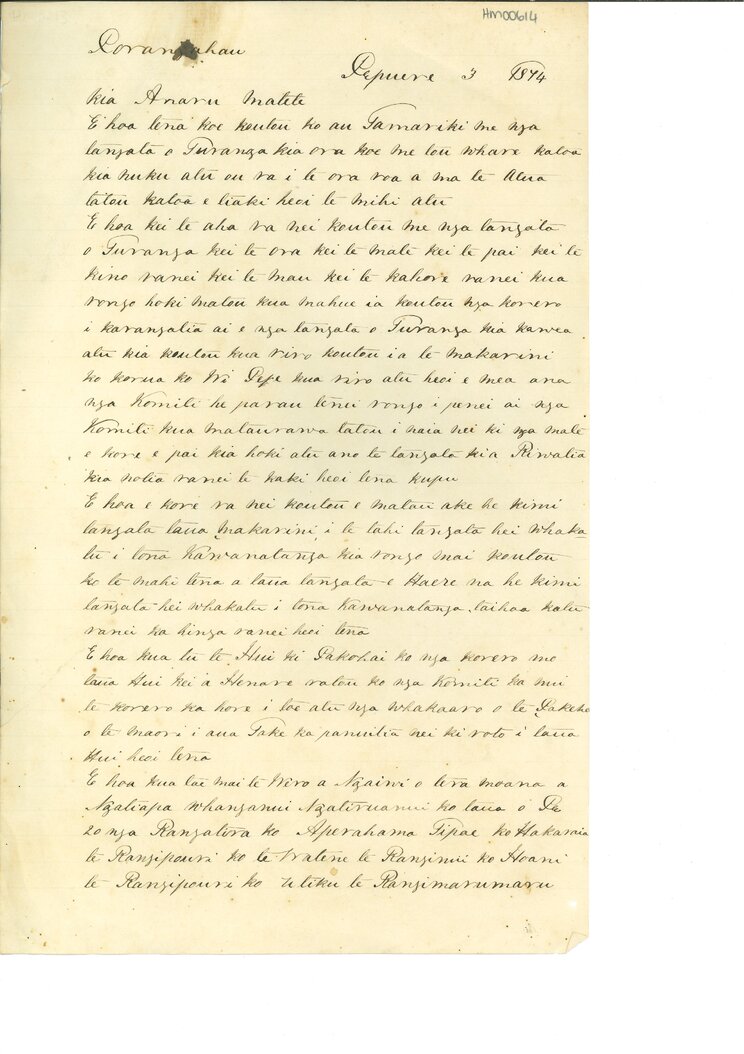 HM00614
Porangahau
Pepuere 3 1874
kia Anaru Matete
E hoa tena koe koutou ko au Tamariki me nga
tangata o Turanga kia ora koe me tou whare katoa
kia nuku atu ou ra i te ora roa a ma te Atua
tatou katoa e tiaki heoi te mihi atu
E hoa kei te aha ra nei koutou me nga tangata
o Turanga kei te ora kei te mate kei te pai kei te
kino ranei kei te mau kei te kahore ranei kua
rongo hoki matou kua mahue ia koutou nga korero
i karangatia ai e nga tangata o Turanga kia kawea
atu kia koutou kua riro koutou i a te makarini
ko korua ko Wi Pepe kua riro atu heoi e mea ana
nga Komiti he parau tenei rongo i penei ai nga
Komiti kua mataurawa tatou i naia nei ki nga mate
e kore e pai kia hoki atu ano te tangata kia Riwatia
kia notia ranei te kaki heoi tena kupu
E hoa e kore ra nei koutou e matau ake he kimi
tangata taua makarini i te tahi tangata hei whaka
tu i tona Kawanatanga kia rongo mai koutou
ko te mahi tena a taua tangata e Haere na he kimi
tangata hei whakatu i tona Kawanatanga taihoa katu
ranei ka hinga ranei heoi tena
E hoa kua tu te Hui ki Pakohai ko nga korero mo
taua Hui kei a Henare ratou ko nga Komiti ka nui
te korero ka hore i toe atu nga whakaaro o te Pakeha
o te maori i aua Take ka panuitia nei ki roto i taua
Hui heoi tena
E hoa kua tae mai te Wiro a Ngaiwi o tera moana a
Ngatiapa Whanganui Ngatiruanui ko taua o Pe
20 nga Rangatira ko Aperahama Tipae ko Hakaraia
te Rangipouri ko te Watene te Ranginui ko Hoani
te Rangipouri ko Utiku te Rangimarumaru